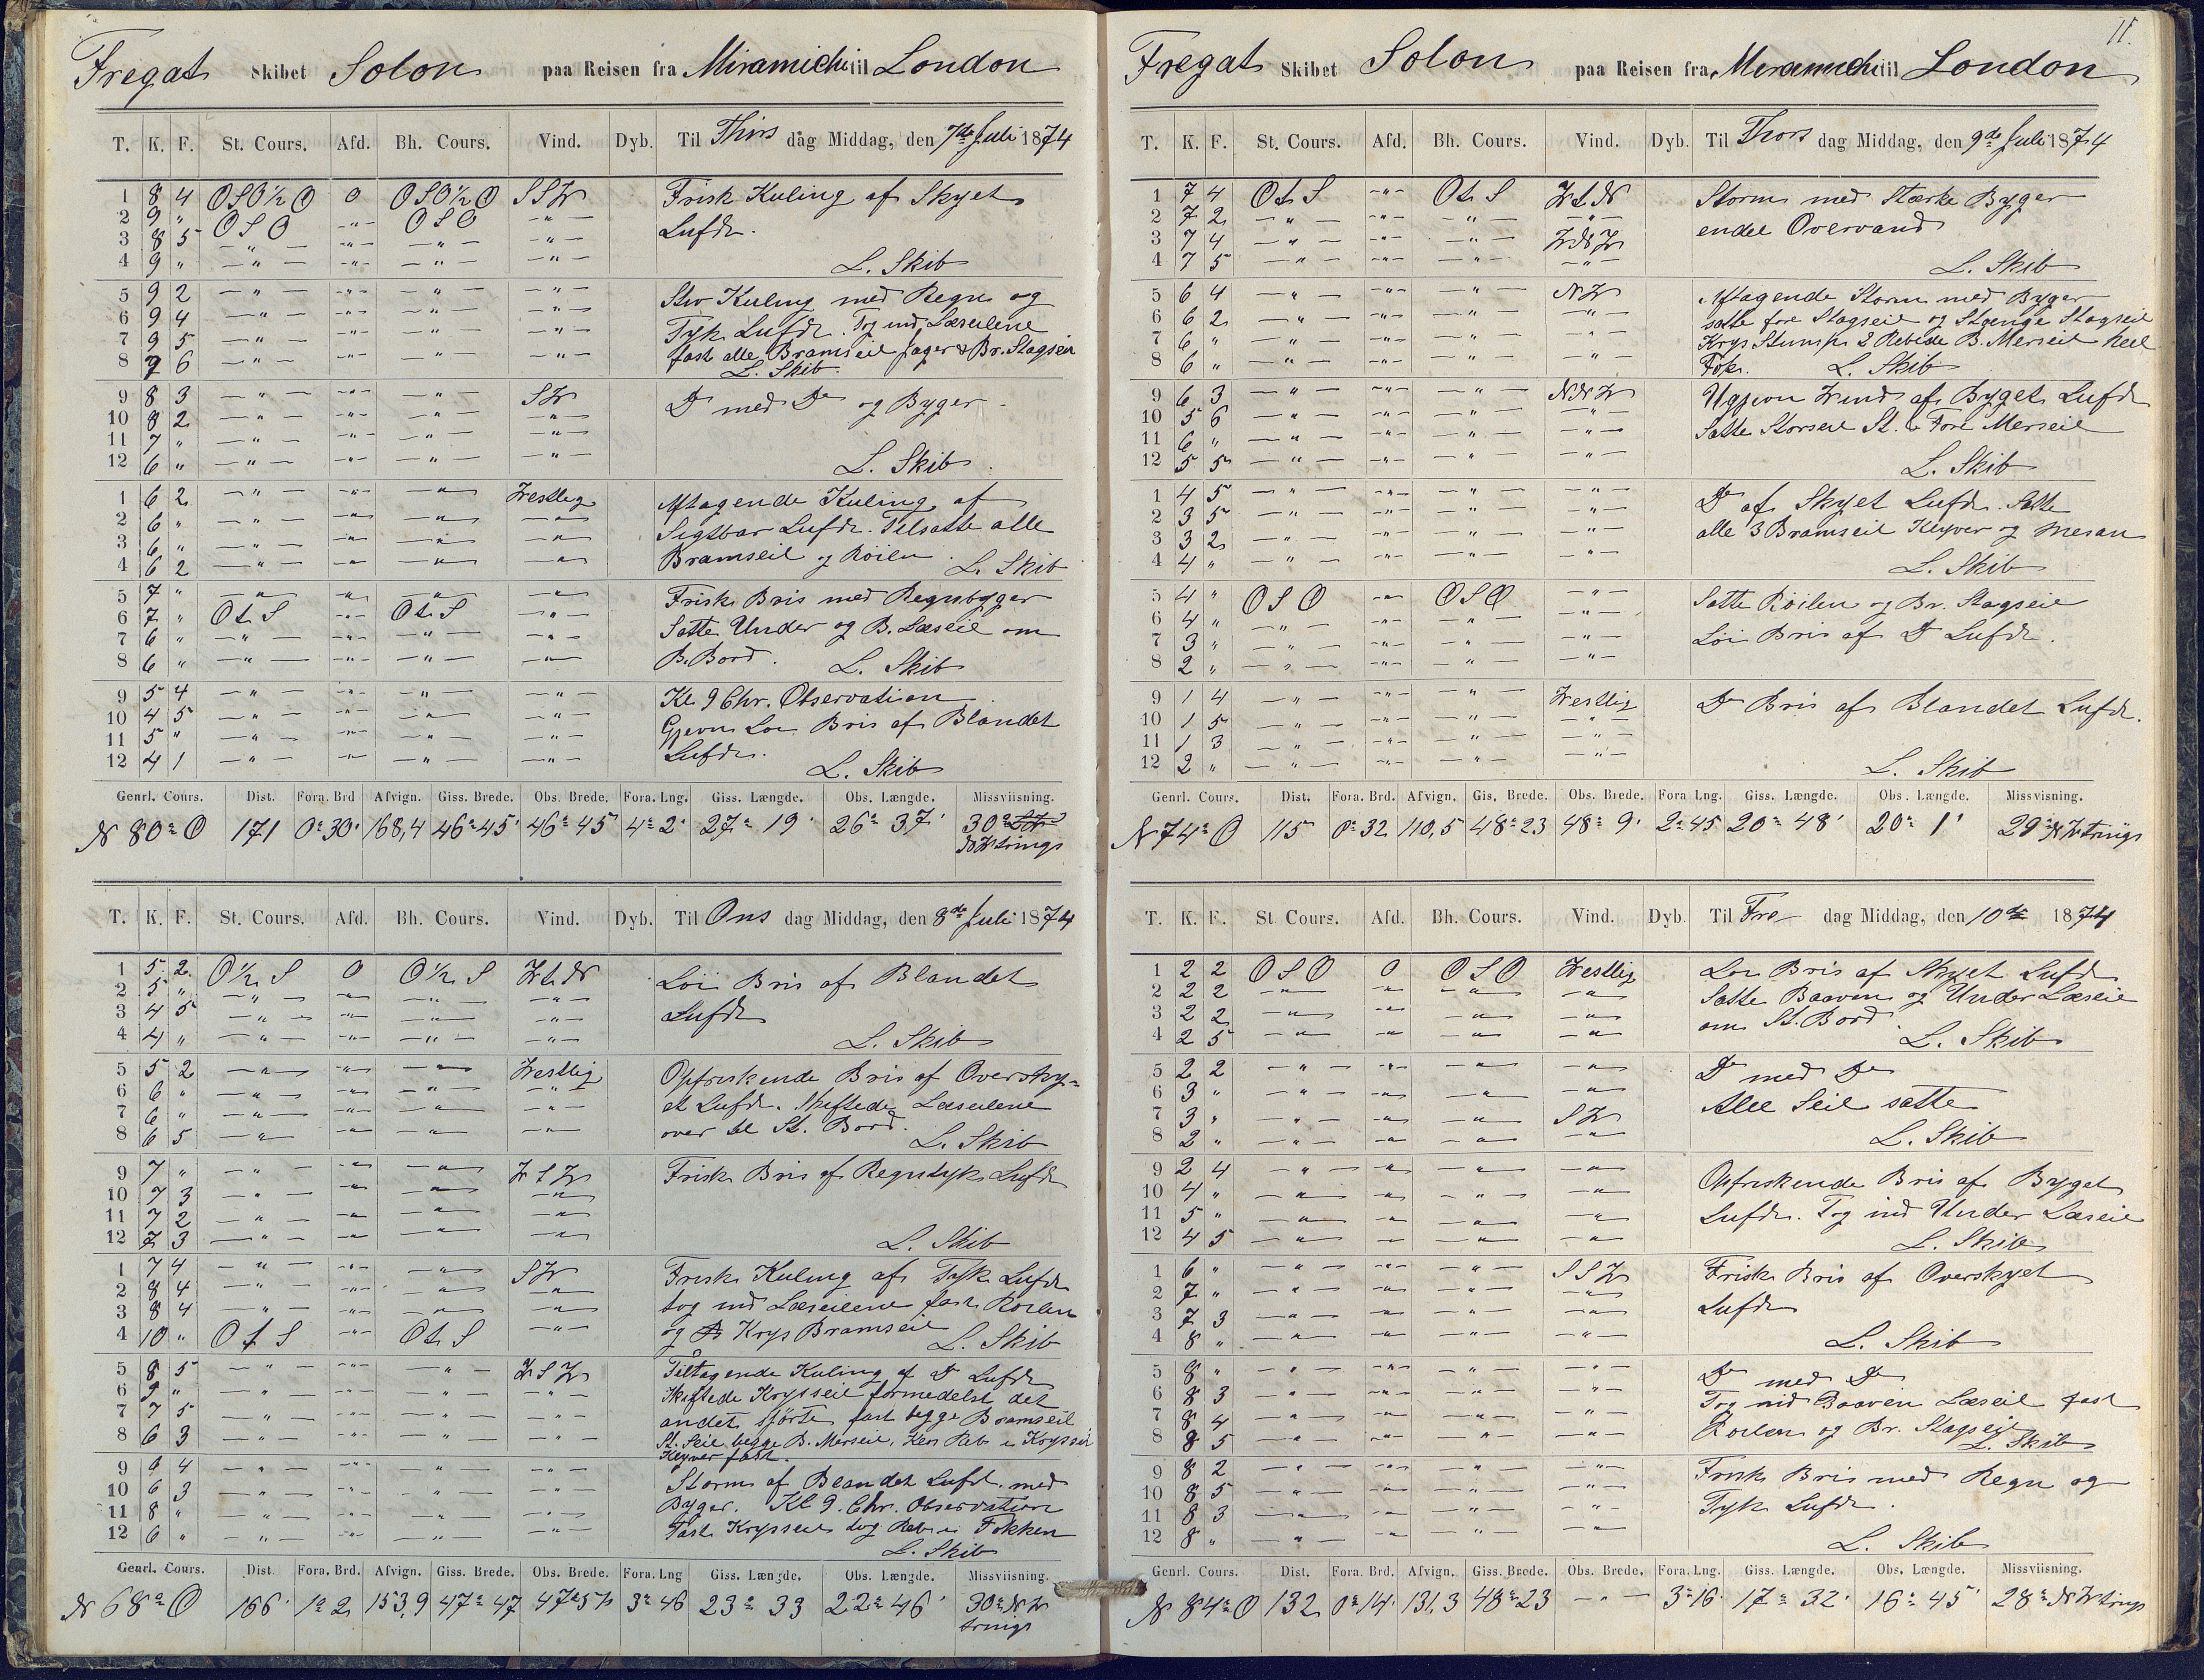 Fregat Skibet Solon paa Reisen fra Miramichi til London
T. K. F. St. Cours. Afd. Bh. Cours. Vind. Dyb. Til Thirs dag Middag, den 7de Juli 1874
1 8 4 OSO½O O OSO½O SSW Frisk Kuling af Skyet
2 9 " OSO -"- OSO -"- Luft.
3 8 5 -"- -"- -"- -"-
4 9 " -"- -"- -"- -"- L. Skib
5 9 2 -"- -"- -"- -"- Stiv Kuling med Regn og
6 9 4 -"- -"- -"- -"- Tyk Luft. Tog ind Læseilene
7 9 5 -"- -"- -"- -"- fast alle Bramseil Jager & Br. Stagseil
8 9 6 -"- -"- -"- -"- L. Skib.
9 8 3 -"- -"- -"- SW Do med Do og Byger
10 8 2 -"- -"- -"- -"-
11 7 " -"- -"- -"- -"-
12 6 " -"- -"- -"- -"- L. Skib.
1 6 2 -"- -"- -"- Westlig Aftagende Kuling af
2 6 " -"- -"- -"- -"- Sigtbar Luft. Tilsatte alle
3 6 " -"- -"- -"- -"- Bramseil og Röilen.
4 6 2 -"- -"- -"- -"- L. Skib
5 7 " -"- -"- -"- -"- Frisk Bris med Regnbyger
6 7 " OtS -"- OtS -"- Satte Under og B. Læseil om
7 6 " -"- -"- -"- -"- B. Bord.
8 6 " -"- -"- -"- -"- L. Skib
9 5 4 -"- -"- -"- -"- Kl. 9 Chr. Observation
10 4 5 -"- -"- -"- -"- Gjevn Löi Bris af Blandet
11 5 " -"- -"- -"- -"- Luft.
12 4 1 -"- -"- -"- -"- L. Skib
Genrl. Cours. Dist. Fora. Brd Afvign. Giss. Brede. Obs. Brede. Fora. Lng. Giss. Længde. Obs. Længde. Missviisning.
N 80° O 171 0° 30' 168,4 46° 45' 46° 45' 4° 2' 27° 19' 26° 37' 30°
NWtrings
T. K. F. St. Cours. Afd. Bh. Cours. Vind. Dyb. Til Ons dag Middag, den 8de Juli 1874
1 5 2 O½S O O½S WtN Löi Bris af Blandet
2 5 " -"- -"- -"- -"- Luft
3 4 5 -"- -"- -"- -"-
4 4 " -"- -"- -"- -"- L. Skib
5 5 2 -"- -"- -"- Westlig Opfriskende Bris af Oversky=
6 6 " -"- -"- -"- -"- et Luft. Skiftede Læseilene
7 6 " -"- -"- -"- -"- over til St. Bord.
8 6 5 -"- -"- -"- -"- L. Skib
9 7 " -"- -"- -"- WSW Frisk Bris af Regntyk Luft
10 7 3 -"- -"- -"- -"-
11 7 2 -"- -"- -"- -"-
12 7 3 -"- -"- -"- -"- L. Skib
1 7 4 -"- -"- -"- SW Frisk Kuling af Tyk Luft
2 8 4 -"- -"- -"- -"- tog ind Læseilene fast Röilen
3 8 4 -"- -"- -"- -"- og Krys Bramseil
4 10 " OtS -"- OtS -"- L. Skib
5 8 5 -"- -"- -"- WSW Tiltagende Kuling af Do Luft
6 9 " -"- -"- -"- -"- Skiftede Krysseil formedelst det
7 7 5 -"- -"- -"- -"- andet sförte fast begge Bramseil
8 6 3 -"- -"- -"- -"- St. Seil begge B. Merseil, Klos Reb i Krysseil
Klyver fast.
9 6 4 -"- -"- -"- -"- Storm af Blandet Luft med
10 6 3 -"- -"- -"- -"- Byger. Kl 9. Chr. Observation
11 8 " -"- -"- -"- -"- Fast Krysseil tog Reb i Fokken
12 6 " -"- -"- -"- -"- L. Skib
Genrl. Cours. Dist. Fora. Brd. Afvign. Giss. Brede. Obs. Brede. Fora. Lng Giss. Længde. Obs. Længde. Missviisning.
N 68° O 166 1° 2 153,9 47° 47 47° 57 3° 46 23° 33 22° 46' 30° NW
trings
11.
Fregat Skibet Solon paa Reisen fra Miramichi til London
T. K. F. St. Cours. Afd. Bh. Cours. Vind. Dyb. Til Thors dag Middag, den 9de Juli 1874
1 7 4 OtS -"- OtS WtN Storm med Stærke Byger
2 7 2 -"- -"- -"- -"- endel Overvand
3 7 4 -"- -"- -"- WNW
4 7 5 -"- -"- -"- -"- L. Skib
5 6 4 -"- -"- -"- NW Aftagende Storm med Byger
6 6 2 -"- -"- -"- -"- satte fore Stagseil og Stænge Stagseil
7 6 " -"- -"- -"- -"- Krys Stump 2 Rebede B. Merseil heel
8 6 " -"- -"- -"- -"- Fok. L. Skib
9 6 3 -"- -"- -"- NNW Ugjevn Wind af Byget Luft
10 5 6 -"- -"- -"- -"- Satte Storseil St. & Fore Merseil
11 6 " -"- -"- -"- -"-
12 5 5 -"- -"- -"- -"- L. Skib
1 4 5 -"- -"- -"- -"- Do af Skyet Luft. Satte
2 3 5 -"- -"- -"- -"- alle 3 Bramseil Klyver og Mesan
3 3 2 -"- -"- -"- -"-
4 4 " -"- -"- -"- -"- L. Skib
5 4 " OSO -"- OSO -"- Satte Röilen og Br. Stagseil
6 4 " -"- -"- -"- -"- Löi Bris af Do Luft.
7 3 " -"- -"- -"- -"-
8 2 " -"- -"- -"- -"-
9 1 4 -"- -"- -"- Westlig Do Bris af Blandet Luft.
10 1 5 -"- -"- -"- -"-
11 1 3 -"- -"- -"- -"-
12 2 " -"- -"- -"- -"- L. Skib
Genrl. Cours. Dist. Fora. Brd. Afvign. Gis. Brede. Obs. Brede. Fora Lng. Giss. Længde. Obs. Længde. Missvisning.
N 74° O 115 0° 32 110,5 48° 23 48° 9' 2° 45 20° 48' 20° 1' 29° NWtrings
T. K. F. St Cours. Afd. Bh. Cours. Vind. Dyb. Til Fre dag Middag, den 10de 1874
1 2 2 OSO O OSO Westlig Löi Bris af Skyet Luft
2 2 2 -"- -"- -"- -"- Satte Baaven og Under Læseil
3 2 2 -"- -"- -"- -"- om St. Bord
4 2 5 -"- -"- -"- -"- L. Skib
5 2 2 -"- -"- -"- -"- Do med Do
6 3 " -"- -"- -"- -"- Alle Seil satte
7 3 " -"- -"- -"- SW
8 2 " -"- -"- -"- -"- L. Skib
9 2 4 -"- -"- -"- -"- Opfriskende Bris af Byget
10 4 " -"- -"- -"- -"- Luft. Tog ind Under Læseil
11 5 " -"- -"- -"- -"-
12 4 5 -"- -"- -"- -"- L. Skib
1 6 " -"- -"- -"- SSW Frisk Bris af Overskyet
2 7 " -"- -"- -"- -"- Luft
3 7 3 -"- -"- -"- -"-
4 8 " -"- -"- -"- -"- L. Skib
5 8 " -"- -"- -"- -"- Do med Do
6 8 3 -"- -"- -"- -"- Tog ind Baaven Læseil fast
7 8 4 -"- -"- -"- -"- Röilen og Br. Stagseil
8 8 5 -"- -"- -"- -"- L. Skib
9 8 2 -"- -"- -"- -"- Frisk Bris med Regn og
10 8 5 -"- -"- -"- -"- Tyk Luft.
11 8 3 -"- -"- -"- -"-
12 8 " -"- -"- -"- -"- L. Skib
Genrl. Cours. Dist. Fora. Brd. Afvign. Giss. Brede. Obs. Brede. Fora. Lng. Giss. Længde. Obs. Længde. Missviisning.
N 84° O 132 0° 14' 131,3 48° 23 -"- 3° 16' 17° 32' 16° 45' 28° NWtrings